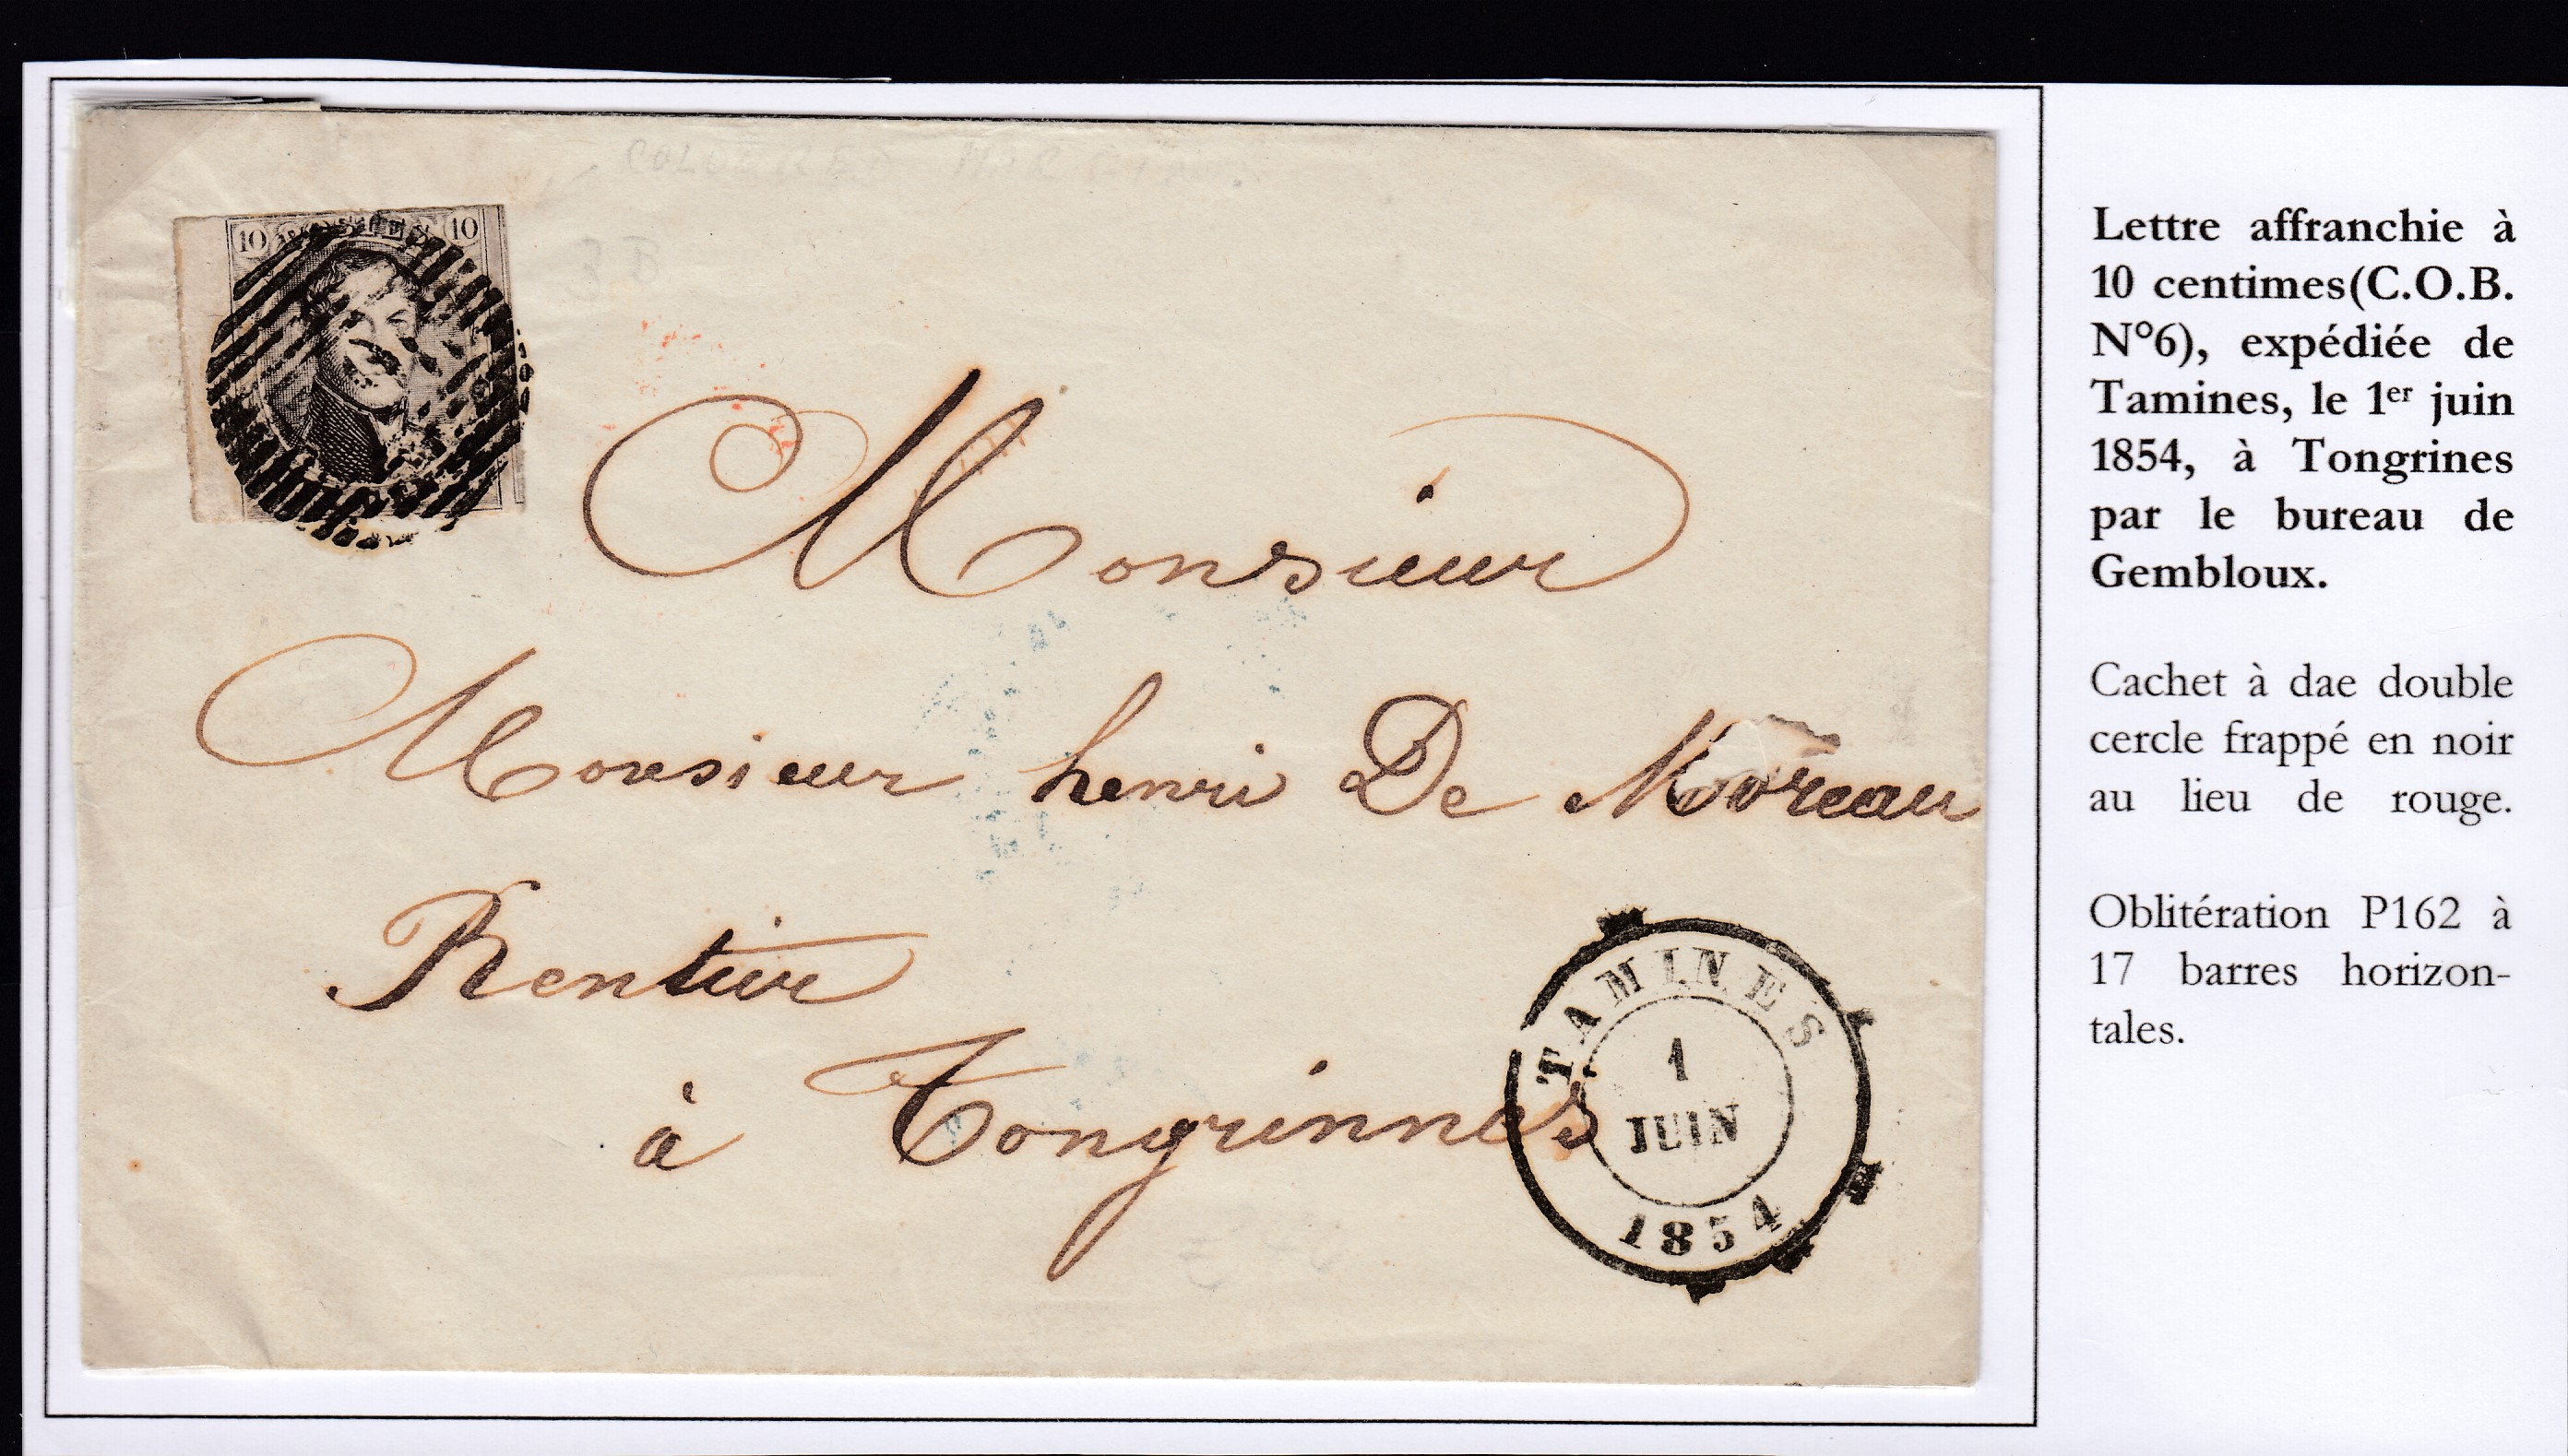 COLOURED
10 POSTES 10
Monsieur
Monsieur henri De Moreau
Rentier
à Tongrinnes
TAMINES
1
JUIN
1854
Lettre affranchie à
10 centimes(C.O.B.
N°6), expédiée de
Tamines, le 1er juin
1854, à Tongrines
par le bureau de
Gembloux.
Cachet à dae double
cercle frappé en noir
au lieu de rouge.
Oblitération P162 à
17 barres horizon-
tales.